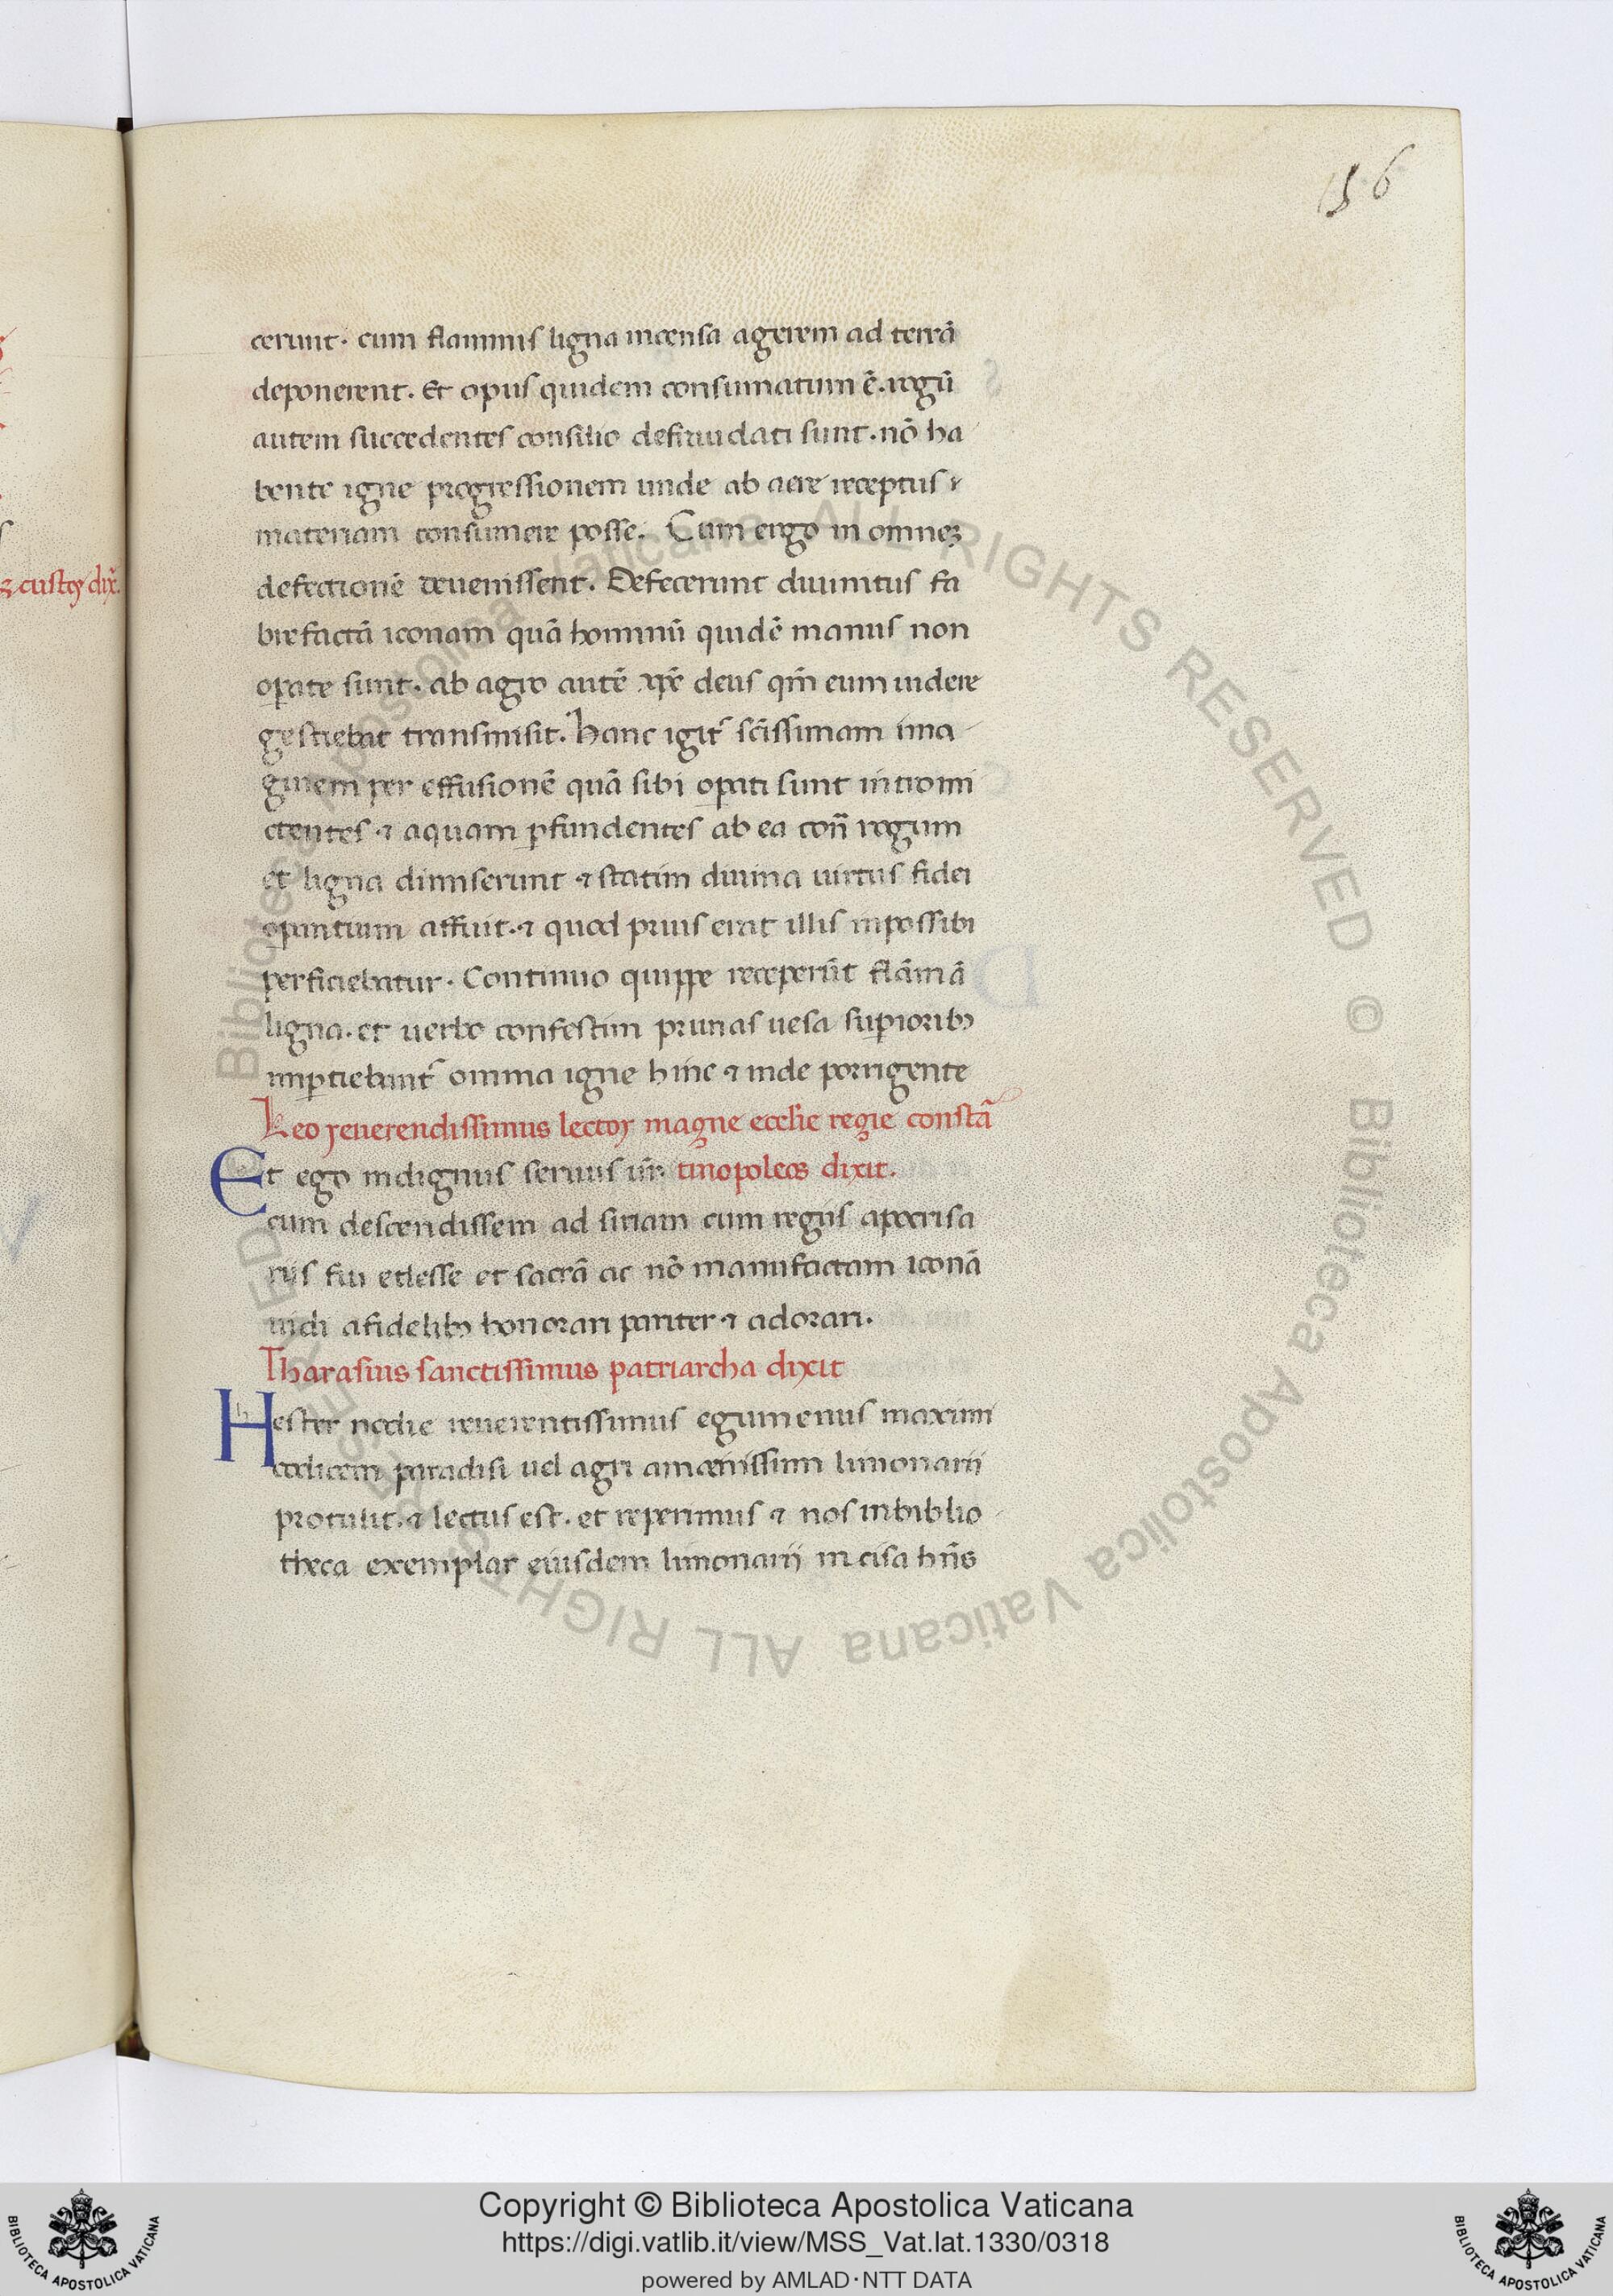 156
cerunt. cum flammis ligna incensa agerem ad terrā
deponerent. Et opus quidem consumatum ē. regū
autem succedentes consilio defraudati sunt. nō ha
bente igne progressionem unde ab aere receptus &
materiam consumere posse. Cum ergo in omneʒ
defectionē deuenissent. Defecerunt diuinitus fa
brefactā iconam quā hominū quidē manus non
operate sunt. ab agro autē xp̄s deus qm̄ eum uidere
gestiebat transmisit. Hanc igit̃ scīssimam ima
ginem per effusionē quā sibi opati sunt intromi
ttentes ⁊ aquam pfundentes ab ea con̄ regum
et ligna dimiserunt ⁊ statim diuina uirtus fidei
opantium affuit. ⁊ quod prius erat illis inpossibi
perficiebatur. Continuo quippe receperūt flāmā
ligna. et uerbo confestim prunas uesa supioribꝫ
impertiebant̃ omnia igne hinc ⁊ inde porrigente
Leo reuerendissimus lector magne ecclīe regie constā
Et ego indignus seruus ur̄. tinopoleos dixit.
cum descendissem ad siriam cum regiis apocrisa
riis fui edesse et sacrā ac nō manufactam iconā
uidi a fidelibꝫ honorari pariter ⁊ adorari.
Tharasius sanctissimus patriarcha dixit
Hester nocdie reuerentissimus egumenus maximi
codicem paradisi uel agri amœnissimi limonarii
protulit. ⁊ lectus est. et reperimus ⁊ nos in biblio
theca exemplar eiusdem limonarij incisa hn̄s
ʒ custos dix̄.
Biblioteca Apostolica Vaticana ALL RIGHTS RESERVED © Biblioteca Apostolica Vaticana ALL RIGHTS RESERVED ©
Copyright © Biblioteca Apostolica Vaticana
https://digi.vatlib.it/view/MSS_Vat.lat.1330/0318
powered by AMLAD·NTT DATA
BIBLIOTECA APOSTOLICA VATICANA
BIBLIOTECA APOSTOLICA VATICANA